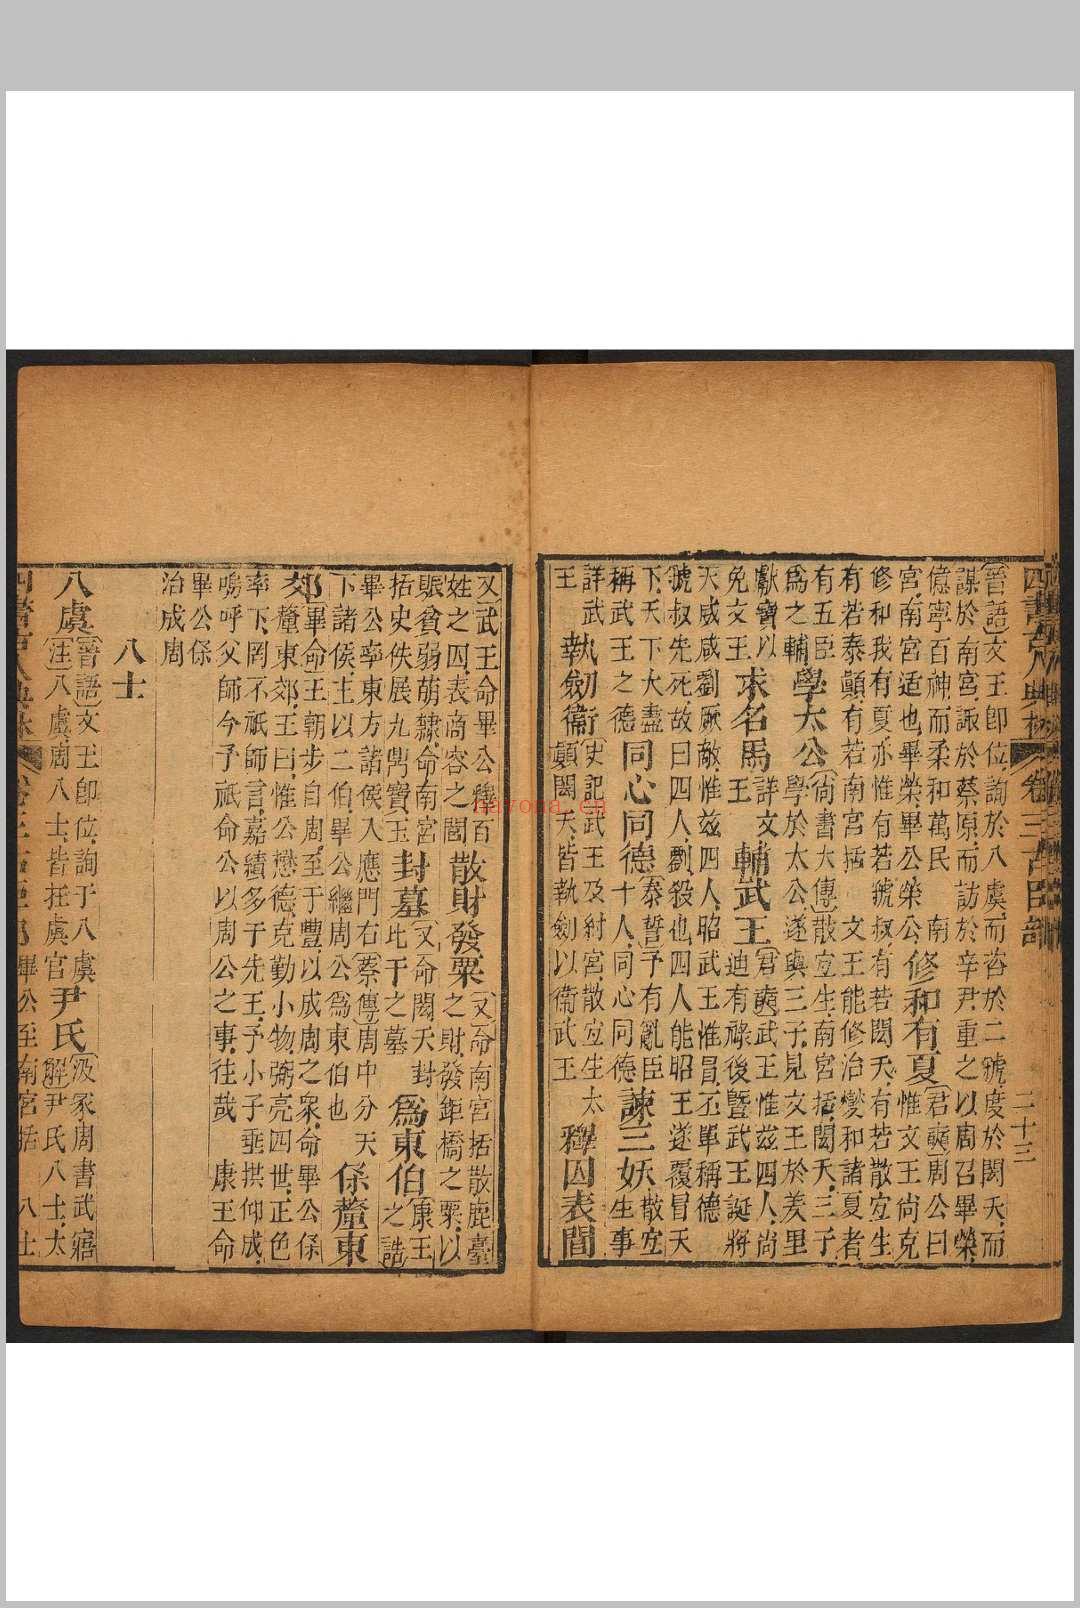 四書古人典林 卷三 古臣部 二十三
晉語文王卽位詢於八虞而咨於二虢度於閎夭而
謀於南宮諏於蔡原而訪於辛尹重之以周召畢榮
億寧百神而柔和萬民 南
宮南宮适也畢榮畢公榮公 修和有夏 君奭周公曰
惟文王尚克
修和我有夏亦惟有若虢叔有若閎夭有若散宜生
有若泰顛有若南宮括 文王能修治燮和諸夏者
有五臣
爲之輔 學太公 尚書大傳散宜生南宮括閎夭三子
學於太公遂與三子見文王於羑里
獻寶以
免文王 求名馬 詳文
王 輔武王 君奭武王惟兹四人尚
迪有祿後曁武王誕將
天威咸劉厥敵惟兹四人昭武王惟冒丕單稱德
虢叔先死故曰四人劉殺也四人能昭王遂覆冒天
下天下大盡
稱武王之德 同心同德 泰誓予有亂臣
十人同心同德 諫三妖 散宜
生事
詳武
王 執劒衞 史記武王及紂宮散宜生太
顛閎夭皆執劍以衞武王 釋囚表閭
又武王命畢公釋百
姓之囚表商容之閭 散財發粟 又命南宮括散鹿臺
之財發鉅橋之粟以
賑貧弱萌隸命南宮
括史佚展九鼎寶玉 封墓 又命閎夭封
比干之墓 爲東伯 康王
之誥
畢公率東方諸侯入應門右蔡傳周中分天
下諸侯主以二伯畢公繼周公爲東伯也 保釐東
郊 畢命王朝步自周至于豐以成周之衆命畢公保
釐東郊王曰惟公懋德克勤小物弼亮四世正色
率下罔不祇師言嘉績多于先王予小子垂拱仰成
嗚呼父師今予祇命公以周公之事往哉 康王命
畢公保
治成周
八士
八虞 晉語文王卽位詢于八虞
注八虞周八士皆在虞官 尹氏 汲冢周書武寤
解尹氏八士太
畢公至南宮括 八士
haYona.cn